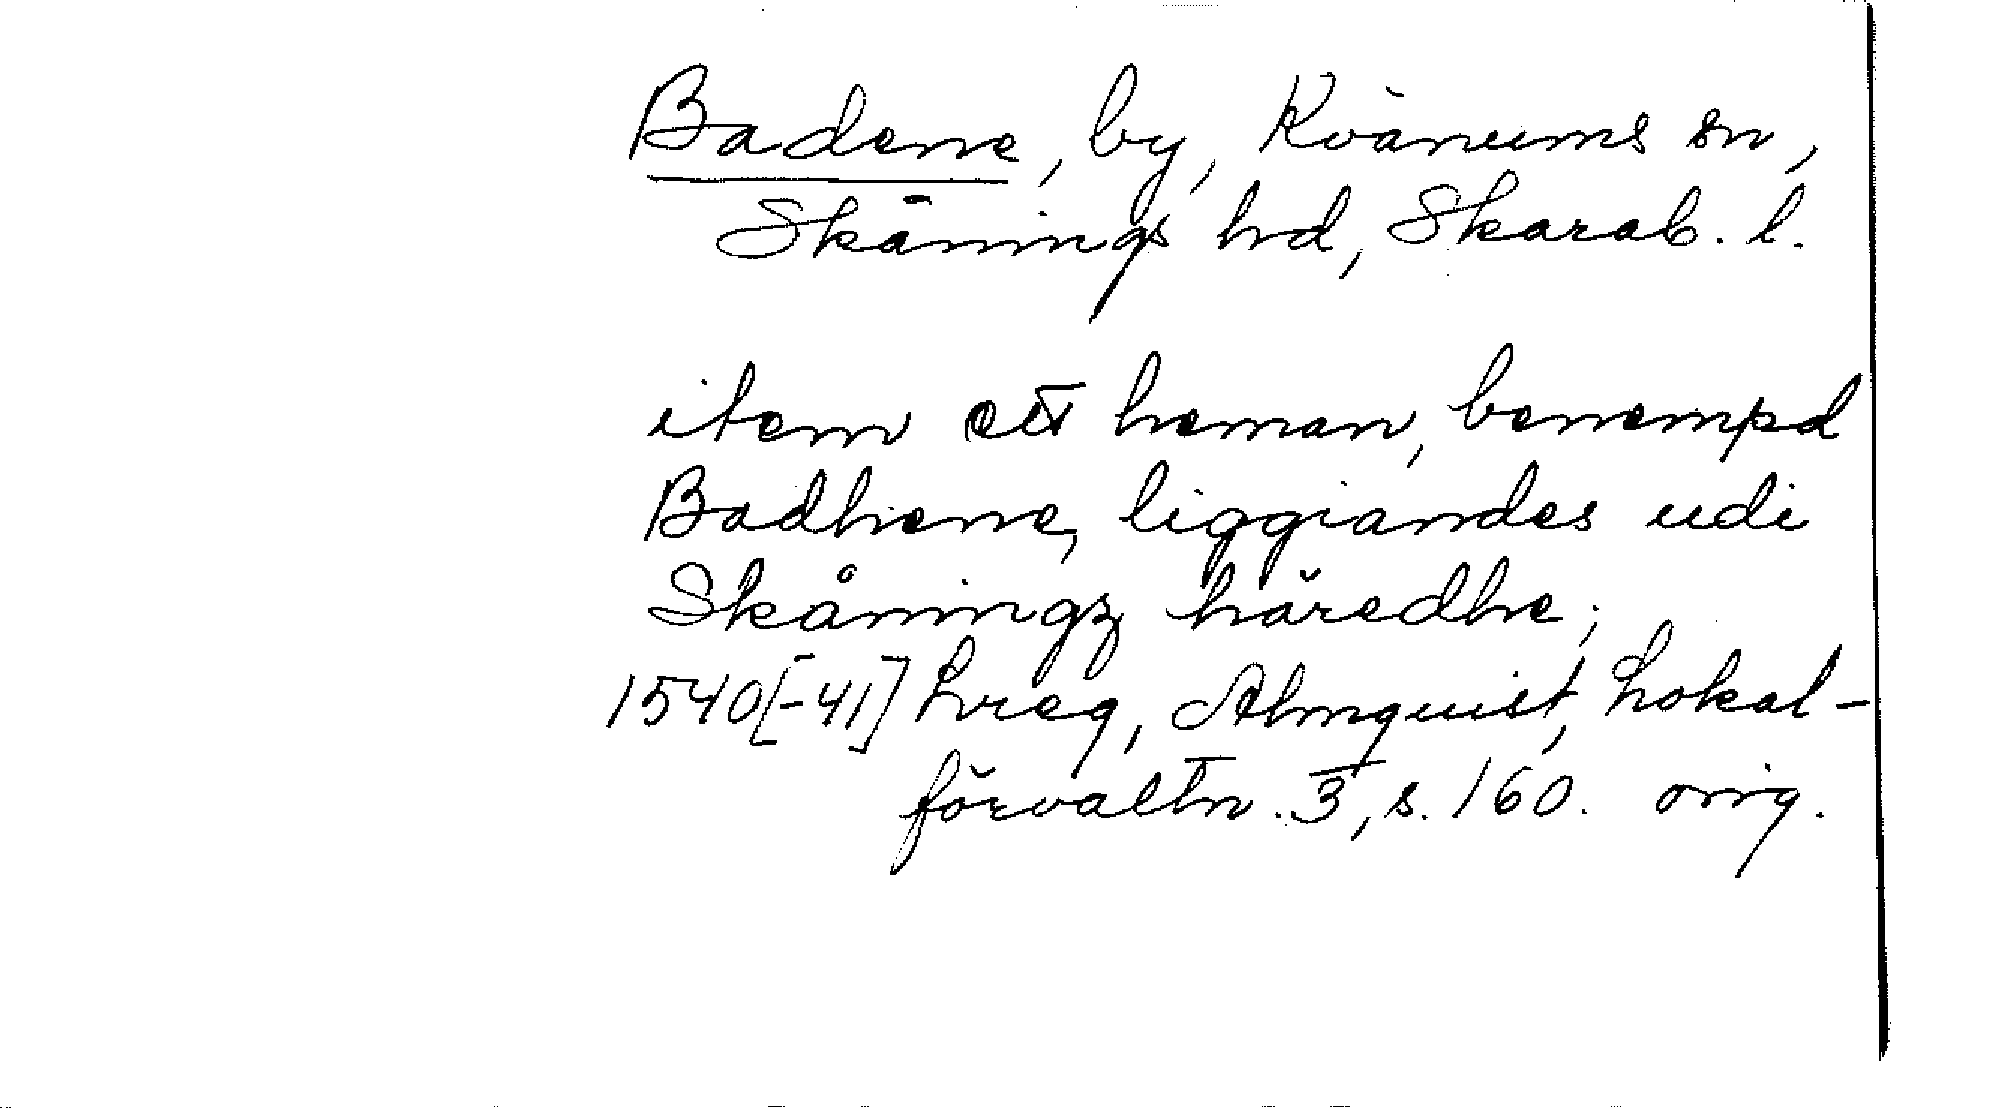 Badene, by, Kvänums sn,
Skånings hd, Skarab. l.
item ett heman, benempd
Badhene, liggiandes udi
Skåningz häredhe;
1540[-41] Lvreg, Almquist, Lokal-
förvaltn. 3, s. 160. orig.